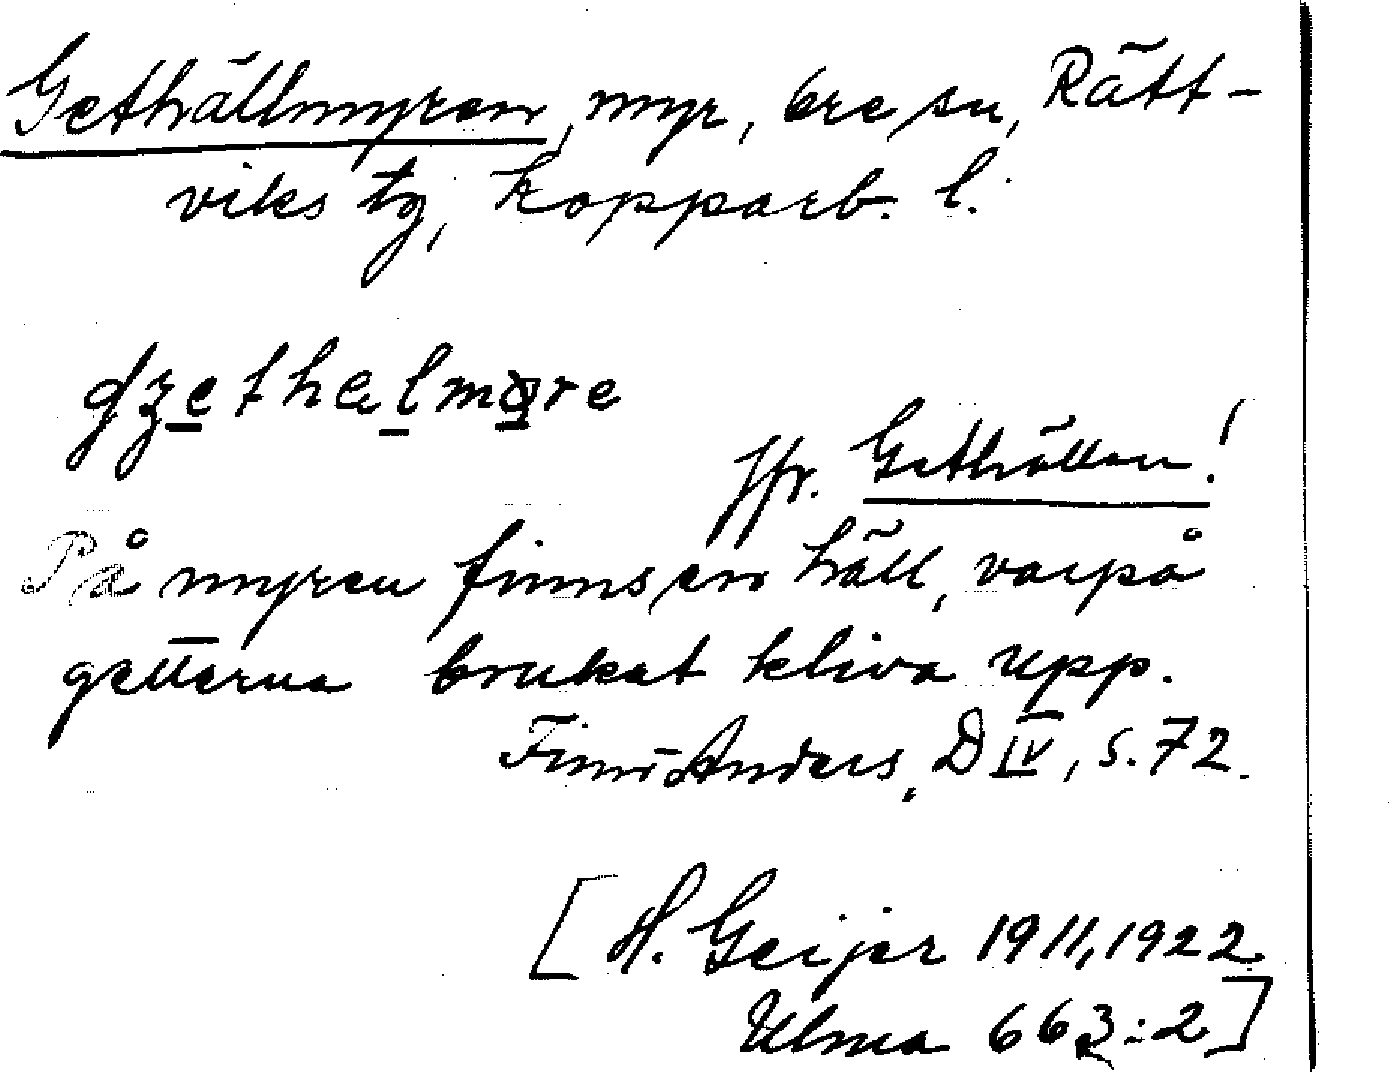 Gethällmyren, myr, Ore sn, Rätt-
viks tg, Kopparb. l.
Jfr. Gethällen!
På myren finns en häll, varpå
getterna brukat kliva upp.
Finn-Anders, D IV, s. 72.
[H. Geijer 1911, 1922
Ulma 663:2]